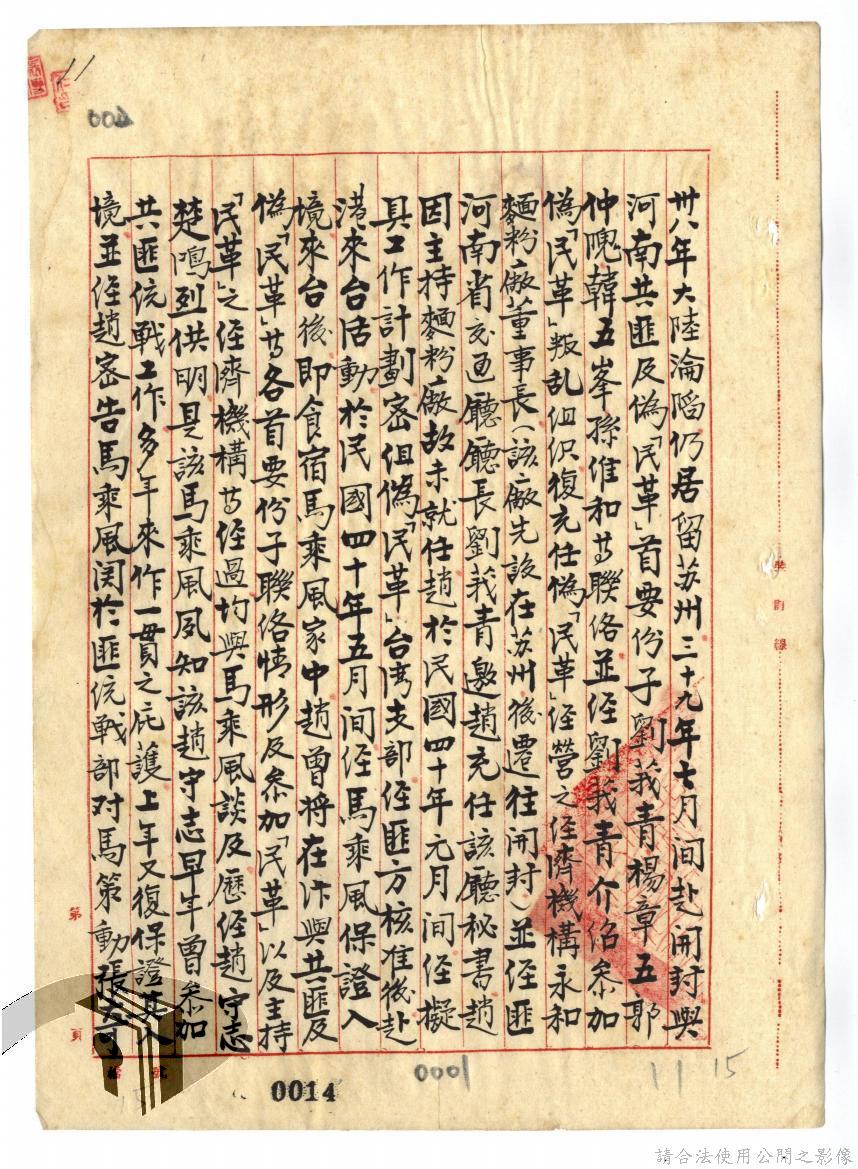 11
000
卅八年大陸淪陷仍居留苏州三十九年七月间赴開封與
河南共匪及偽「民革」首要份子劉莪青楊章五郭
仲隗韓五峯孫維和等聯络並经劉莪青介绍参加
偽「民革」叛乱组织復充任偽「民革」经营之经濟機構永和
麵粉廠董事長（該廠先設在苏州後遷往開封）並经匪
河南省交通廳廳長劉莪青邀趙充任該廳秘書趙
因主持麵粉廠故未就任趙於民國四十年元月间经擬
具工作計劃密组偽「民革」台湾支部经匪方核准後赴
港來台活動於民國四十年五月间经馬乘風保證入
境來台後即食宿馬乘風家中趙曾将在汴與共匪及
偽「民革」等各首要份子聯络情形及参加「民革」以及主持
「民革」之经濟機構等经過均與馬乘風談及歷经趙守志
楚鳴列供明是該馬乘風夙知該趙守志早年曾参加
共匪统戰工作多年來作一貫之庇護上年又復保證其入
境並经趙密告馬乘風関於匪统戰部对馬策動張大可
裝訂線
第
頁
0014
0001
11 15
請合法使用公開之影像